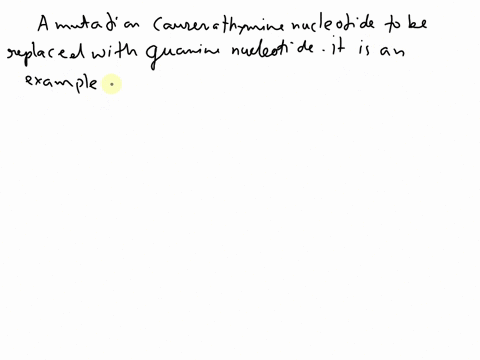 A mutation causes a thymine nucleotide to be
replaced with guanine nucleotide. it is an
example